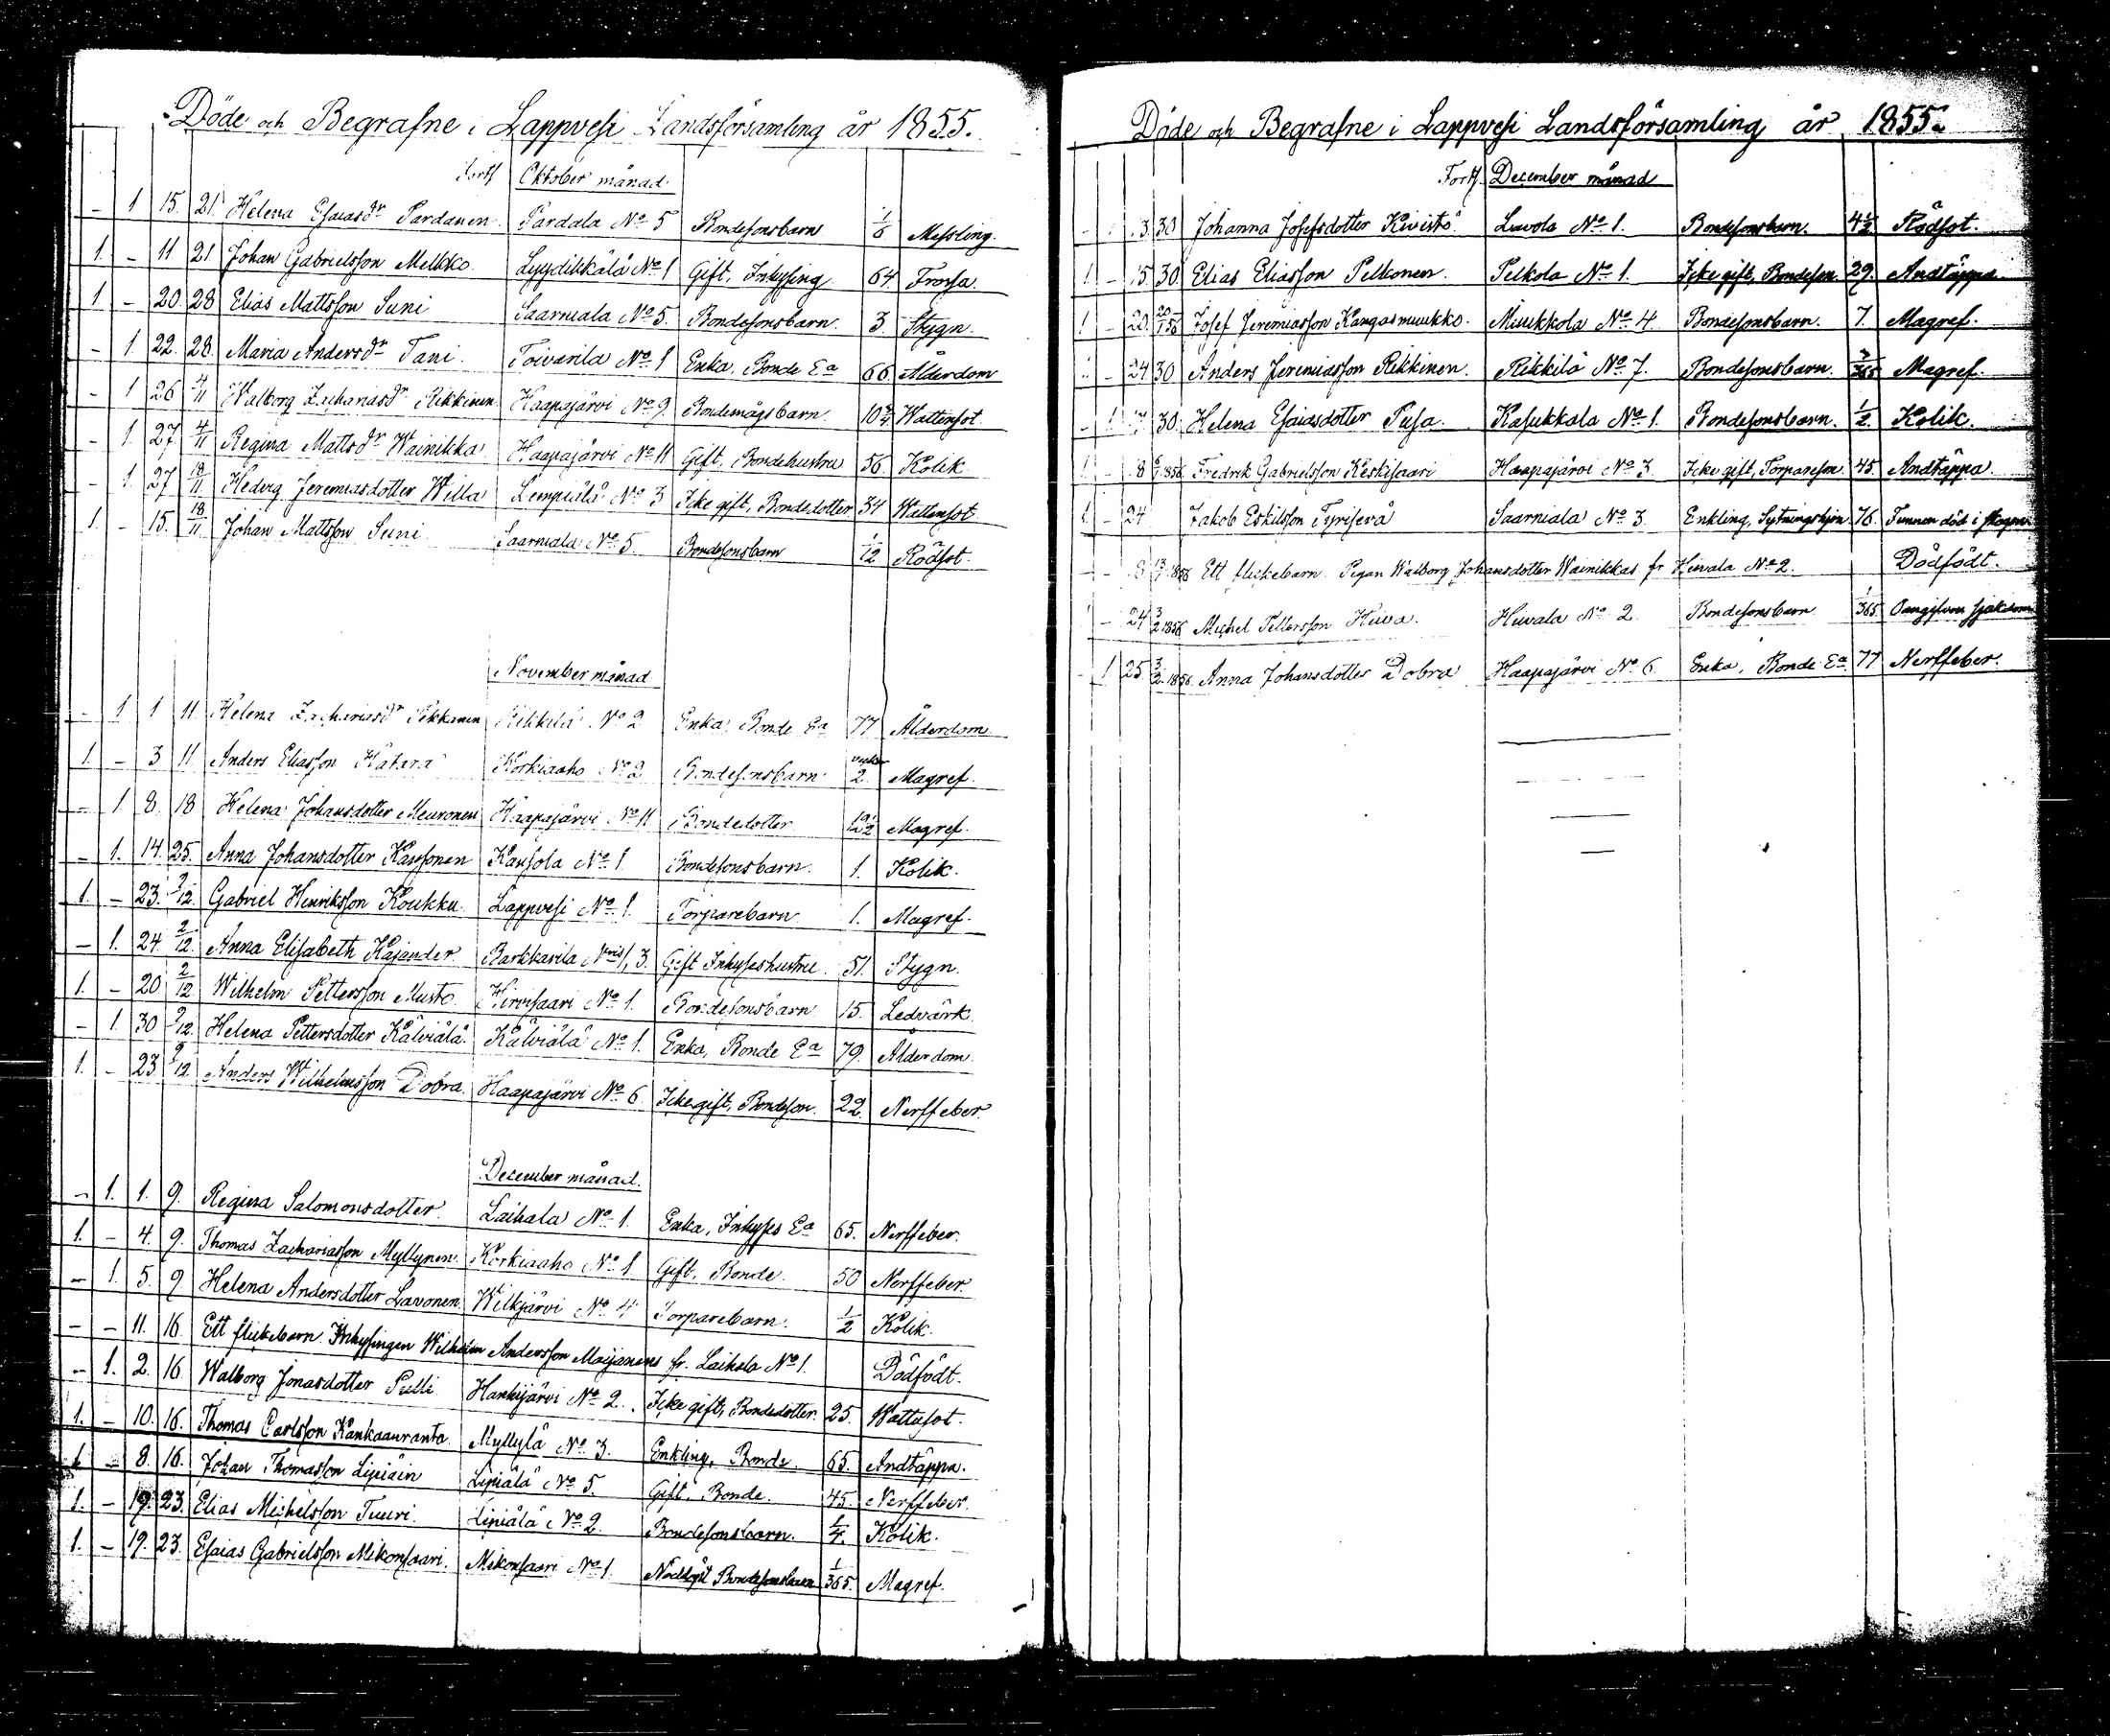 Döde och Begrafne i Lappvesi Landsförsamling år 1855.
Forts. Oktober månad
– 1 15. 21. Helena Esaiasdr Pardanen Pardala No 5 Bondesonsbarn 1/6 Messling.
1. – 11 21 Johan Gabrielsson Melkko Lyydikkälä No 1 Gift, Inhysing 64 Frossa.
1. – 20 28 Elias Mattsson Suni Saarniala No 5. Bondesonsbarn. 3. Stygn
– 1. 22. 28. Maria Andersdr Tani. Toivarila No 1 Enka, Bonde Ea 66. Ålderdom
– 1 26 4/11 Walborg Zachariasdr Rikkinen Haapajärvi No 9. Bondemågsbarn 10 Wattensot.
– 1. 27. 4/11 Regina Mattsdr Wainikka Haapajärvi No 11 Gift, Bondehustru 56. Kolik.
– 1 27 18/11 Hedvig Jeremiasdotter Willa Lempiälä No 3 Icke gift, Bondedotter 34 Wattensot
1. – 15. 18/11 Johan Mattsson Suni Saarniala No 5. Bondesonsbarn 1/12 Rödsot.
November månad
– 1 1 11. Helena Zachariasdr Pekkanen Rikkilä No 2 Enka Bonde Ea 77 Ålderdom
1. – 3 11 Anders Eliasson Korkiaaho No 2 Bondesonsbarn veckor 2. Magref.
– 1. 8. 18 Helena Johansdotter Meuronen Haapajärvi No 11 Bondedotter Magref.
– 1. 14. 25. Anna Johansdotter Kaussonen Kausola No 1 Bondesonsbarn. 1. Kolik.
1. – 23. 2/12. Gabriel Henriksson Koukku. Lappvesi No 1. Torparebarn 1. Magref.
– 1. 24. 2/12. Anna Elisabeth Kajander Karkkarila 1, 3. Gift Inhyseshustru 51. Stygn.
1. – 20 2/12 Wilhelm Pettersson Musto Hirvisaari No 1. Bondesonsbarn 15. Ledvärk.
– 1. 30 9/12. Helena Pettersdotter Kälviälä. Kälviälä No 1. Enka, Bonde Ea 79. Ålderdom.
1. – 23 9/12 Anders Wilhelmsson Dobra. Haapajärvi No 6. Icke gift, Bondeson. 22. Nerffeber.
December månad.
– 1. 1. 9. Regina Salomonsdotter. Laihala No 1. Enka, Inhyses Ea 65. Nerffeber.
1. – 4. 9. Thomas Zachariasson Myllynen. Korkiaaho No 1 Gift, Bonde. 50 Nerffeber
– 1. 5. 9 Helena Andersdotter Lavonen. Wilkjärvi No 4 Torparebarn. 1/2 Kolik.
– – 11. 16. Ett flickebarn. Inhysingen Wilhelm Andersson Maijanens fr. Laihala No 1. Dödfödt.
– 1. 2. 16. Walborg Jonasdotter Pulli Hanhijärvi No 2. Icke gift, Bondedotter. 25. Wattusot.
1. – 10. 16. Thomas Carlsson Kankaanranta. Myllylä No 3. Enkling, Bonde. 65. Andtäppa.
1. – 8. 16. Johan Thomasson Lipiäin Lipiälä No 5. Gift, Bonde. 45. Nerffeber.
1. – 19. 23. Elias Michelsson Tuuri. Lipiälä No 2. Bondesonsbarn. 1/4. Kolik.
1. – 19. 23. Esaias Gabrielsson Mikonsaari. Mikonsaari No 1. Nöddöpt Bondesonsbarn 1/365. Magref.
Döde och Begrafne i Lappvesi Landsförsamling år 1855.
Forts. December månad
– 1 13. 30 Johanna Josefsdotter Kivistö Luvola No 1. Bondesonsbarn. 4 1/2 Rödsot.
1 – 15. 30. Elias Eliasson Pelkonen. Pelkola No 1. Icke gift, Bondeson. 29. Andtäppa.
1 – 20. 20/1 56 Josef Jeremiasson Kangasmuukko. Muukkola No 4. Bondesonsbarn. 7. Magref.
– 24 30 Anders Jeremiasson Rikkinen. Rikkilä No 7. Bondesonsbarn. Magref.
– 1 30. Helena Esaiasdotter Pusa. Kasukkala No 1. Bondesonsbarn. 1/2. Kolik.
1 – 8 1856 Fredrik Gabrielsson Keskisaari Haapajärvi No 3. Icke gift, Torpareson. 45. Andtäppa.
1. – 24 Jakob Eskilsson Tyrisevä Saarniala No 3. Enkling, Sytningshjon. 76. Funnen död i skogen
– – 8 1856 Ett flickebarn. Pigan Walborg Johansdotter Wainikkas fr. Huvala No 2. Dödfödt.
1 – 24 3/2 1856 Michel Pettersson Huva. Huvala No 2. Bondesonsbarn 1/365 Oangifven sjukdom
– 1 25. 3/2. 1856. Anna Johansdotter Dobra Haapajärvi No 6. Enka, Bonde Ea 77 Nerffeber.